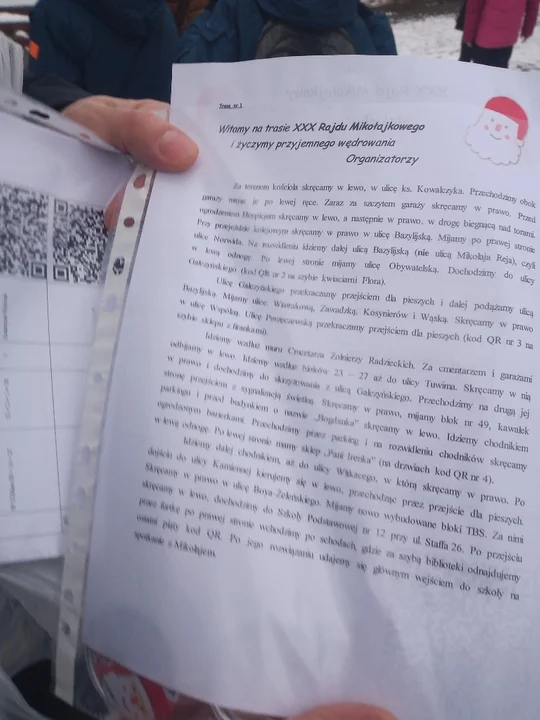 Trasa nr 1
Witamy na trasie XXX Rajdu Mikołajkowego
i życzymy przyjemnego wędrowania
Organizatorzy
Za terenem kościoła skręcamy w lewo, w ulicę ks. Kowalczyka. Przechodzimy obok
garaży mając je po lewej ręce. Zaraz za szczytem garaży skręcamy w prawo. Przed
ogrodzeniem Hospicjum skręcamy w lewo, a następnie w prawo, w drogę biegnącą nad torami.
Przy przejeździe kolejowym skręcamy w prawo w ulicę Bazylijską. Mijamy po prawej stronie
ulicę Norwida. Na rozwidleniu idziemy dalej ulicą Bazylijską (nie ulicą Mikołaja Reja), czyli
w lewą odnogę. Po lewej stronie mijamy ulicę Obywatelską. Dochodzimy do ulicy
Gałczyńskiego (kod QR nr 2 na szybie kwiaciarni Flora).
Ulicę Gałczyńskiego przekraczamy przejściem dla pieszych i dalej podążamy ulicą
Bazylijską. Mijamy ulice: Wiatrakową, Zawadzką, Kosynierów i Wąską. Skręcamy w prawo
w ulicę Wspólną. Ulicę przekraczamy przejściem dla pieszych (kod QR nr 3 na
szybie sklepu z firankami).
Idziemy wzdłuż muru Cmentarza Żołnierzy Radzieckich. Za cmentarzem i garażami
odbijamy w lewo. Idziemy wzdłuż bloków 23 – 27 aż do ulicy Tuwima. Skręcamy w nią
w prawo i dochodzimy do skrzyżowania z ulicą Gałczyńskiego. Przechodzimy na drugą jej
stronę przejściem z sygnalizacją świetlną. Skręcamy w prawo, mijamy blok nr 49, kawałek
parkingu i przed budynkiem o nazwie „Bogdanka" skręcamy w lewo. Idziemy chodnikiem
ogrodzonym barierkami. Przechodzimy przez parking i na rozwidleniu chodników skręcamy
w lewą odnogę. Po lewej stronie mamy sklep „Pani Irenka" (na drzwiach kod QR nr 4).
Idziemy dalej chodnikiem, aż do ulicy Witkacego, w którą skręcamy w prawo. Po
dojściu do ulicy Kamiennej kierujemy się w lewo, przechodząc przez przejście dla pieszych.
Skręcamy w prawo w ulicę Boya-Żeleńskiego. Mijamy nowo wybudowane bloki TBS. Za nimi
skręcamy w lewo, dochodzimy do Szkoły Podstawowej nr 12 przy ul. Staffa 26. Po przejściu
przez furtkę po prawej stronie wchodzimy po schodach, gdzie za szybą biblioteki odnajdujemy
ostatni piąty kod QR. Po jego rozwiązaniu udajemy się głównym wejściem do szkoły na
spotkanie z Mikołajem.